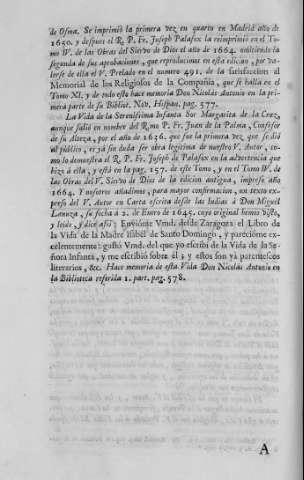 de Osma. Se imprimiò la primera vez en quarto en Madrid año de
1650. y despues el R. P. Fr. Joseph Palafox la reimprimiò en el To-
mo IV. de las Obras del Siervo de Dios el año de 1664. omitiendo la
segunda de sus aprobaciones, que reproducimos en esta edicion, por va-
lerse de ella el V. Prelado en el numero 491. de la satisfaccion al
Memorial de los Religiosos de la Compañia, que se halla en el
Tomo XI. y de todo esto hace memoria Don Nicolàs Antonio en la pri-
mera parte de su Bibliot. Nov. Hispan. pag. 577.
La Vida de la Serenissima Infanta Sor Margarita de la Cruz,
aunque saliò en nombre del Rmo P. Fr. Juan de la Palma, Confesor
de su Alteza, por el año de 1636. que fue la primera vez que se diò
al publico, es yà sin duda ser obra legitima de nuestro V. Autor, co-
mo lo demuestra el R. P. Fr. Joseph de Palafox en la advertencia que
hizo à ella, y està en la pag. 257. de este Tomo, y en el Tomo IV. de
las Obras del V. Siervo de Dios de la edicion antigua, impresa año
1664. Y nosotros añadimos, para mayor confirmacion, un texto ex-
preso del V. Autor en Carta escrita desde las Indias à Don Miguel
Lanuza, su fecha à 2. de Enero de 1645. cuyo original hemos visto,
y leìdo, y dice asi: Envióme Vmd. desde Zaragoza el Libro de
la Vida de la Madre Isabel de Santo Domingo, y pareciòme ex-
celentemente: gustò Vmd. del que yo escribì de la Vida de la Se-
ñora Infanta, y me escribiò sobre èl; y estos son yà parentescos
literarios, &c. Hace memoria de esta Vida Don Nicolàs Antonio en
la Biblioteca referida 1. part. pag. 578.
A